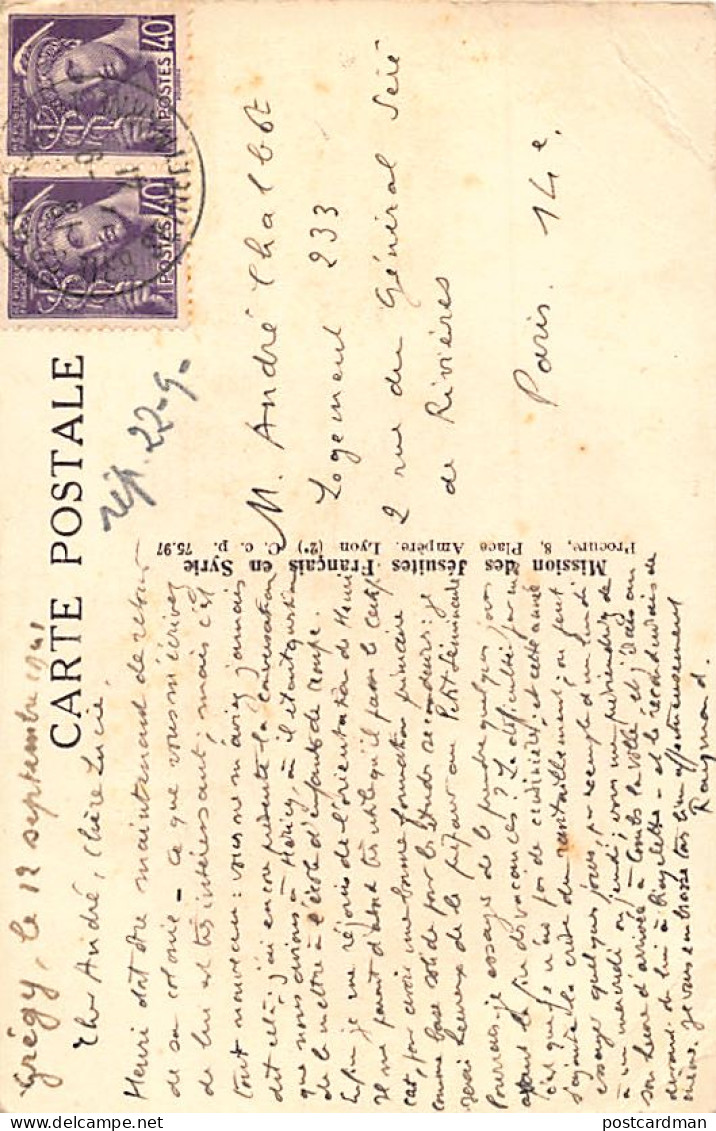 CARTE POSTALE
POSTES 40
POSTES 40
rép. 22-9-
M. André Chalbot
Logement 233
2 rue du Général Séré
de Rivières
Paris. 14e.
Mission des Jésuites Français en Syrie
Procure, 8, Place Ampère. Lyon (2e) C. c. p. 75.97
Grégy, le 12 septembre 1941
Cher André, Chère Lucie,
Henri doit être maintenant de retour
de sa colonie - ce que vous m'écrivez
de lui est très intéressant, mais c'est
tout nouveau : vous ne m'aviez jamais
dit cela ; j'ai encore présente la conversation
que nous avions à Héricy, où il était question
de le mettre à l'école d'enfants de troupe.
Enfin je me réjouis de l'orientation de Henri
Il me paraît d'abord très utile qu'il passe le certif
cat, pour avoir une bonne formation primaire
comme base solide pour les études secondaires : je
serai heureux de le préparer au Petit Séminaire
Pourrais-je essayer de le prendre quelques jours
avant la fin des vacances ? La difficulté
c'est que je n'ai pas de cuisinière, et cette année
s'ajoute la crise du ravitaillement ; on peut
essayer quelques jours, par exemple d'un lundi
à un mercredi ou jeudi ; vous me préviendrez de
son heure d'arrivée à Combs la ville, et j'irais au
devant de lui à bicyclette - et le reconduirais de
même. Je vous embrasse tous bien affectueusement
Raymond.
postcardman